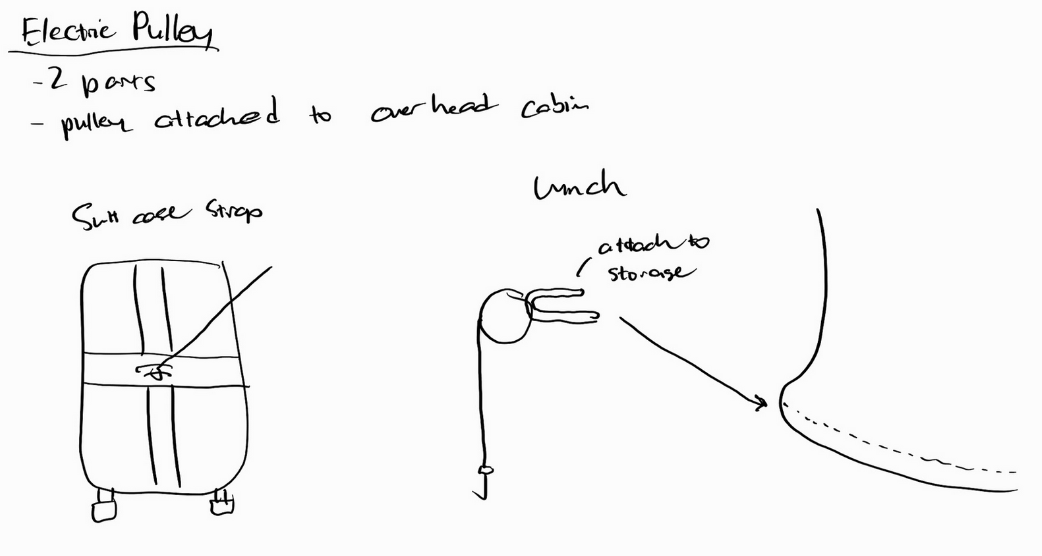 Electric Pulley
- 2 parts
- pulley attached to overhead cabin
Suitcase Strap
Winch
attach to
storage